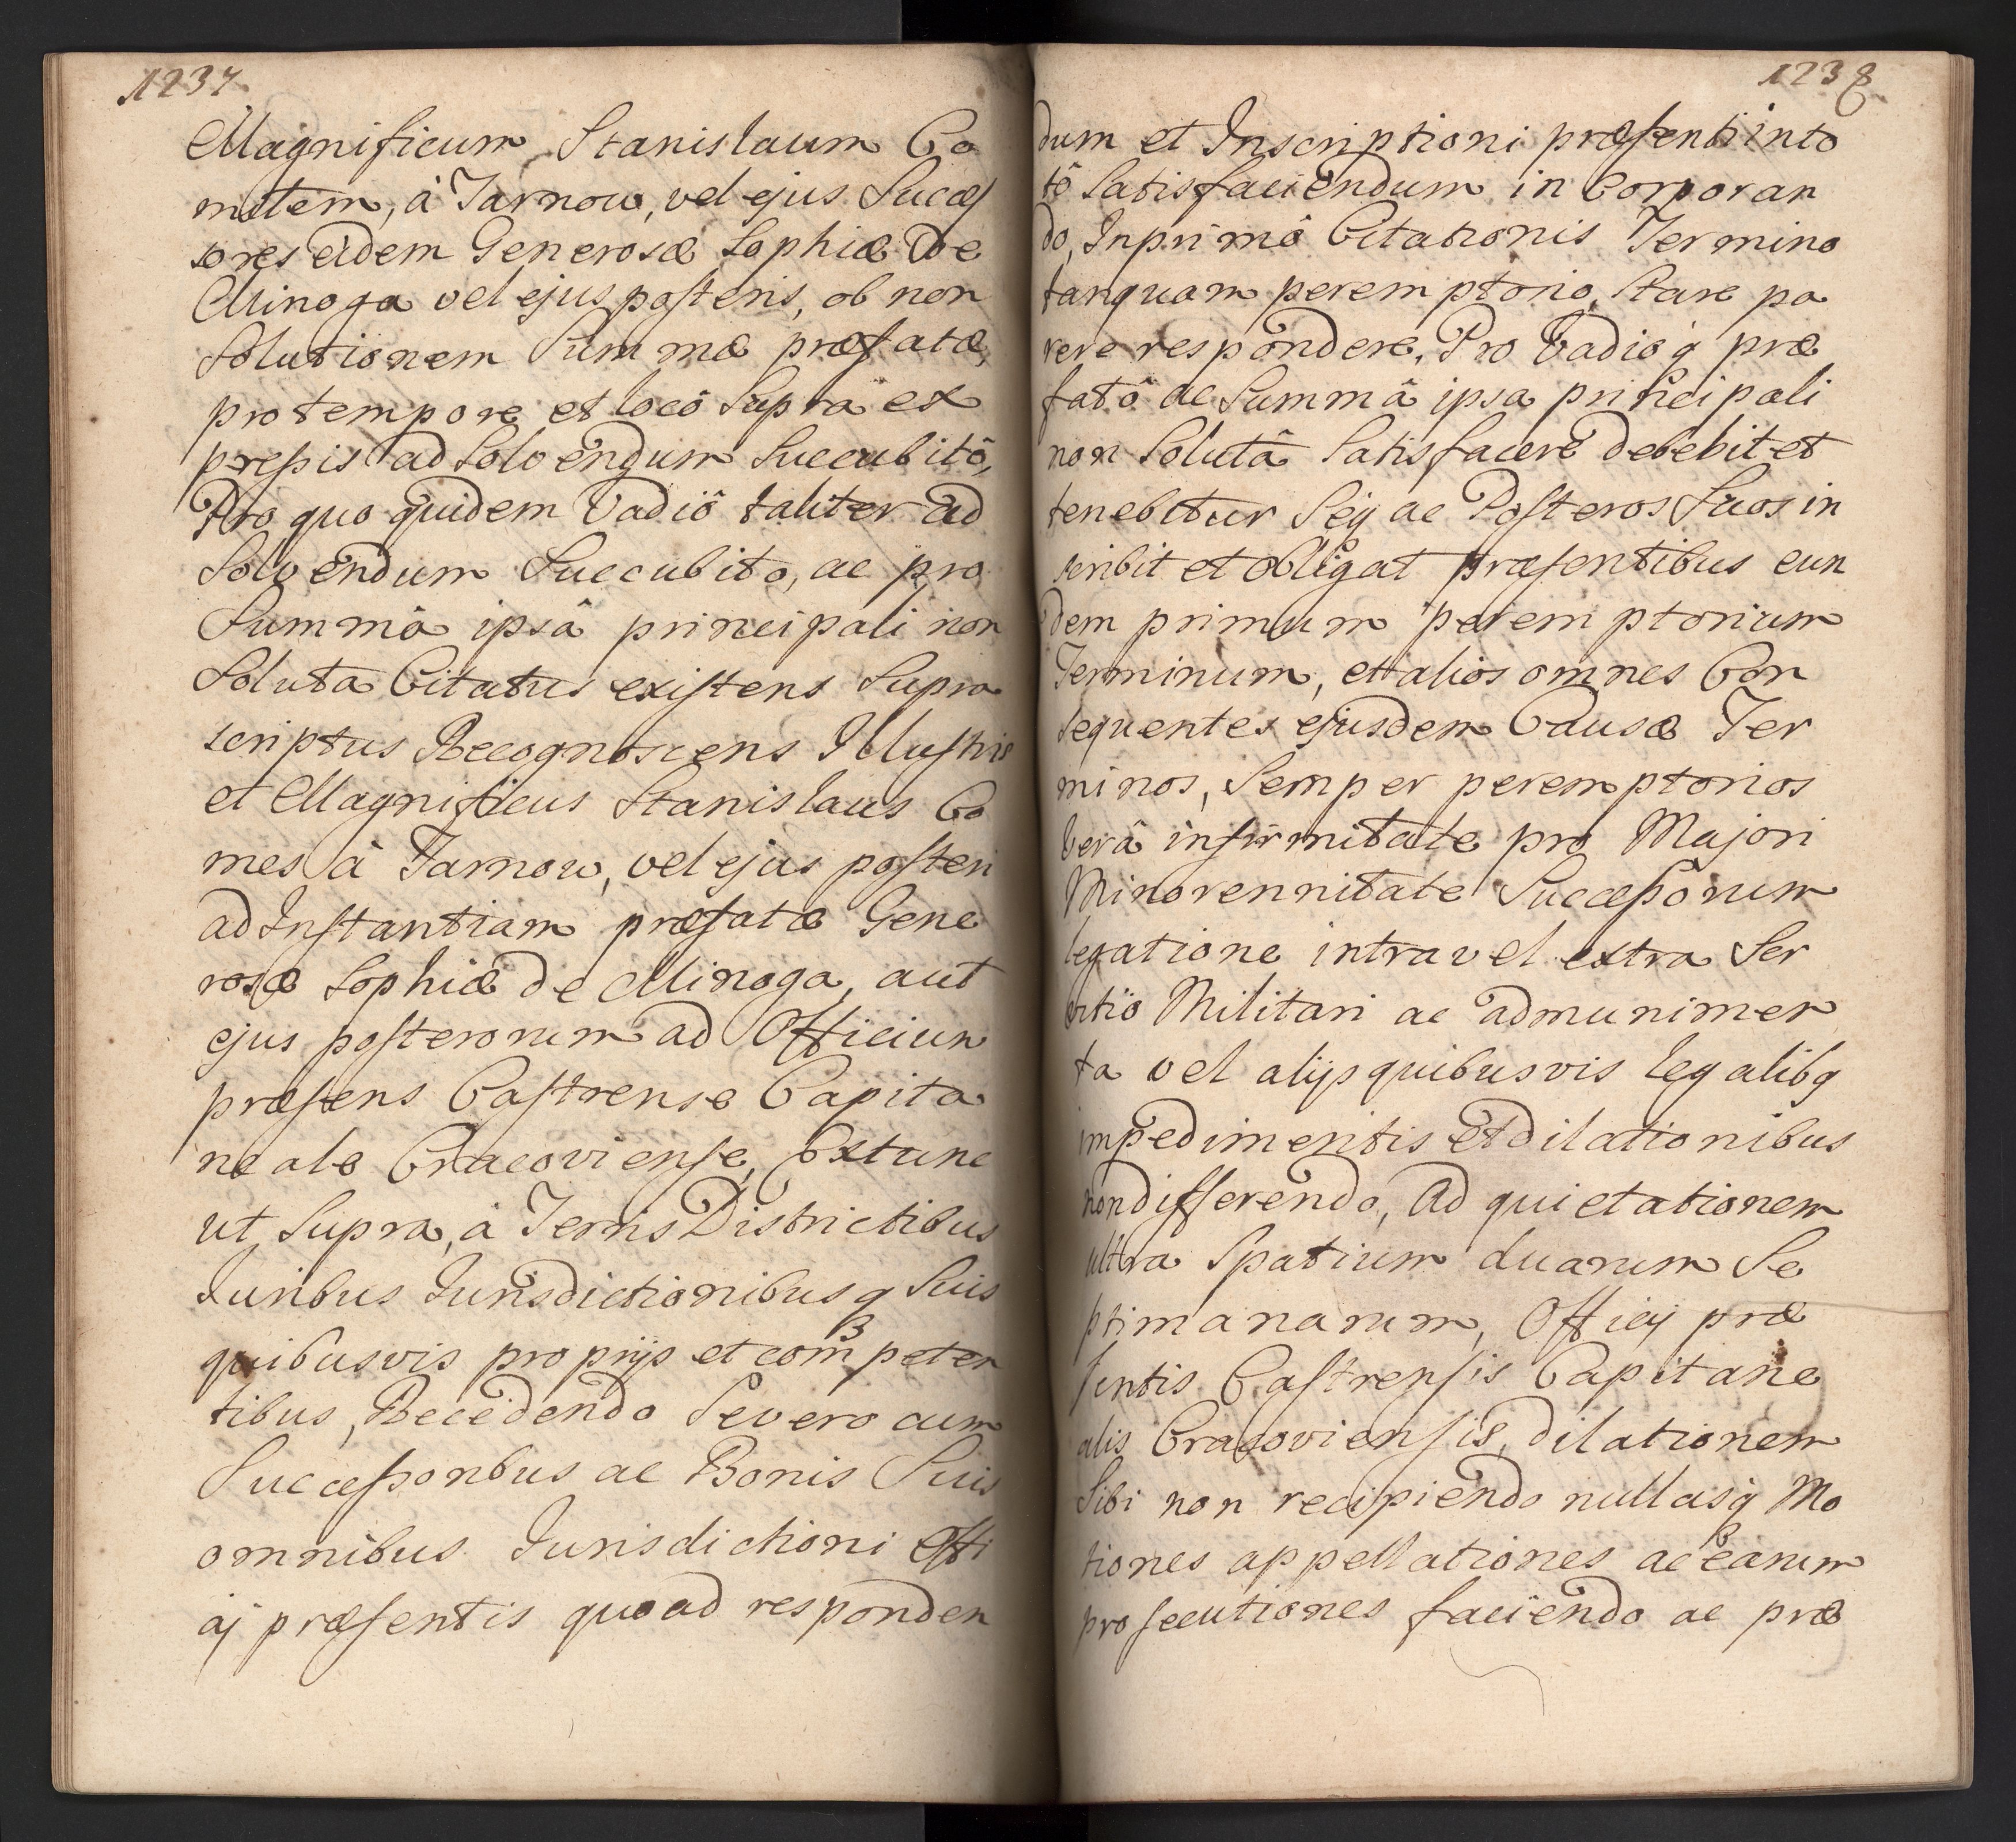 1237
Magnificum Stanislaum Co
mitem, à Tarnow, vel ejus Succes
sores eidem Generosæ Sophiæ de
Minoga vel ejus posteris, ob non
Solutionem Summæ præfatæ,
pro tempore et locô Supra ex
pressis ad Solvendum Succubitô,
Pro quo quidem Vadiô taliter ad
Solvendum Succubito, ac pro
Summâ ipsâ principali non
Soluta Citatus existens Supra
scriptus Recognoscens Illustris
et Magnificus Stanislaus Co
mes à Tarnow, vel ejus posteri
ad Instantiam præfatæ Gene
rosæ Sophiæ de Minoga, aut
ejus posterorum ad Officium
præsens Castrense Capita
neale Cracoviense, Extunc
ut Supra, à Terris Districtibus
Iuribus Iurisdictionibusq Suis
quibusvis proprijs et competen
tibus, Recedendo Se vero cum
Successoribus ac Bonis Suis
omnibus Iurisdictioni Offi
cij præsentis quo ad responden
1238
dum et Inscriptioni præsenti in to
tô Satisfaciendum in Corporan
do, In primô Citationis Termino
tanquam peremptorio, Stare pa
rere respondere, Pro Vadioq præ
fatô ac Summâ ipsa principali
non Solutâ Satisfacere debebit et
tenebitur Seq ac Posteros Suos in
scribit et obligat præsentibus eun
dem primum peremptorium
Terminum, et alios omnes Con
sequentes ejusdem Causæ Ter
minos, Semper peremptorios
verâ infirmitate pro Majori
Minorennitate Successorum
legatione intra vel extra Ser
vitiô Militari ac admunimen
ta vel alijs quibusvis legalibq
impedimentis et dilationibus
non differendo, Ad quietationem
ultra Spatium duarum Se
ptimanarum, Officij præ
sentis Castrensis Capitane
alis Cracoviensis, dilationem
Sibi non recipiendo nullasq Mo
tiones appellationes ac earum
prosecutiones faciendo ac præ